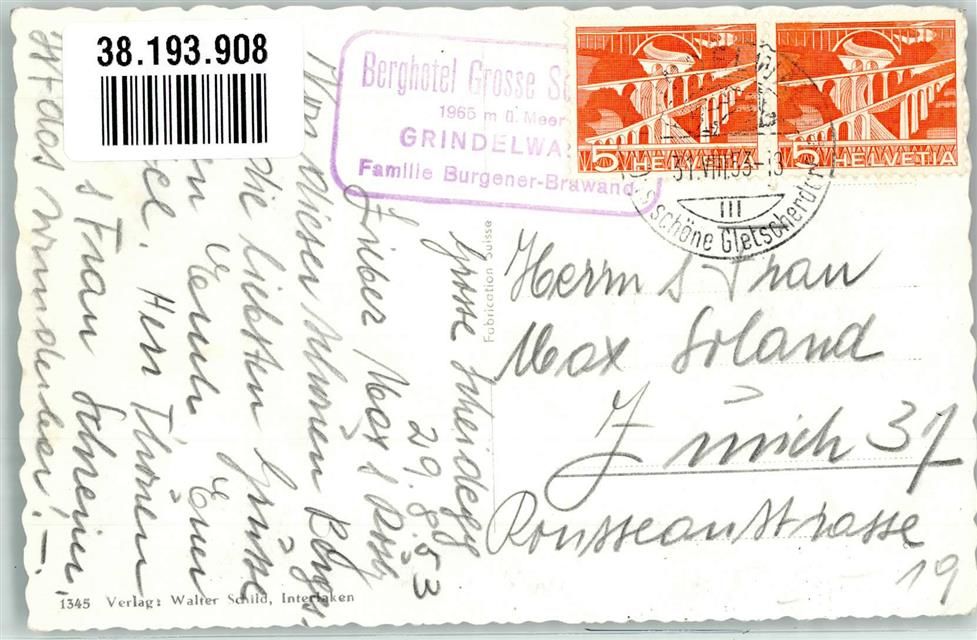 38.193.908
Berghotel Grosse
1965 m ü. Meer
GRINDELWA
Familie Burgener-Brawand
5 HELVETIA
5 HELVETIA
31.VIII.53-13
III
schöne Gletscherdorf
Fabrication Suisse
Grosse Scheidegg
29.8.53
Lieber Max & Rösly
Von diesen schönen Berges-
die liebsten Grüsse
Euch Euer
Herr Thönen
& Frau Schreiner.
Ist das wunderbar! –
Herrn & Frau
Max Soland
Zürich 37
Rousseaustrasse
19
1345 Verlag: Walter Schild, Interlaken